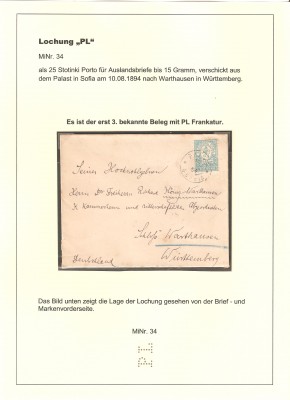 Lochung „PL“
MiNr. 34
als 25 Stotinki Porto für Auslandsbriefe bis 15 Gramm, verschickt aus
dem Palast in Sofia am 10.08.1894 nach Warthausen in Württemberg.
Es ist der erst 3. bekannte Beleg mit PL Frankatur.
Seiner Hochwohlgeboren
Herrn Dr Freiherrn Richard König-Warthausen
Kammerherrn und
Schloß Warthausen
Deutschland
Württemberg
Das Bild unten zeigt die Lage der Lochung gesehen von der Brief - und
Markenvorderseite.
MiNr. 34